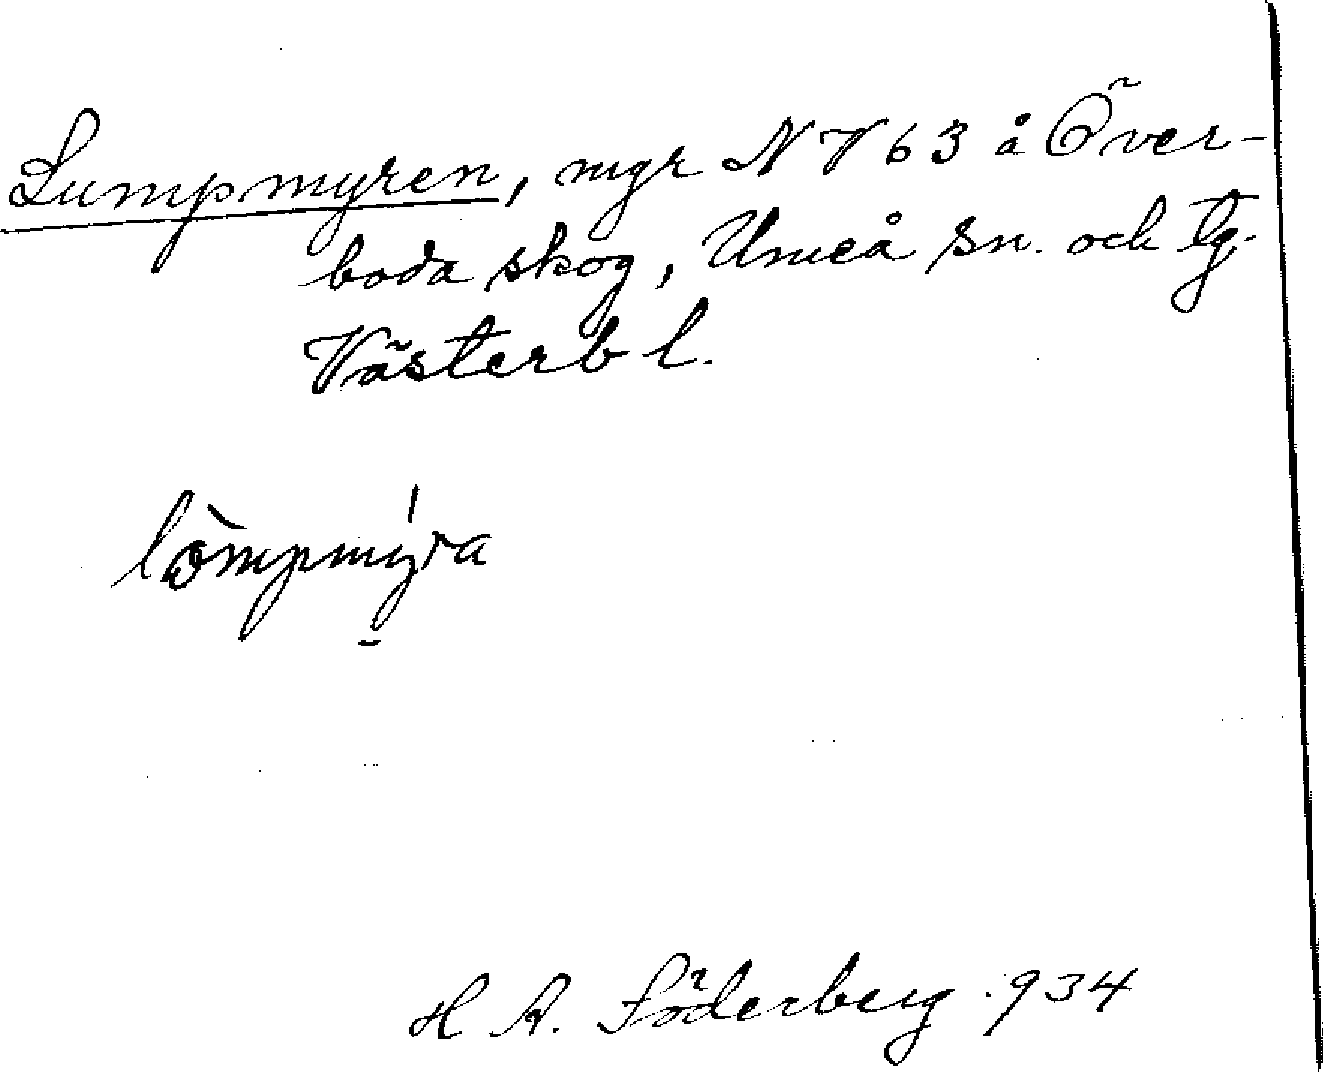 Lumpmyren, mgr N V 63 å Över-
boda skog, Umeå sn. och tg.
Västerb l.
lòmpmýra
H A. Söderberg 934